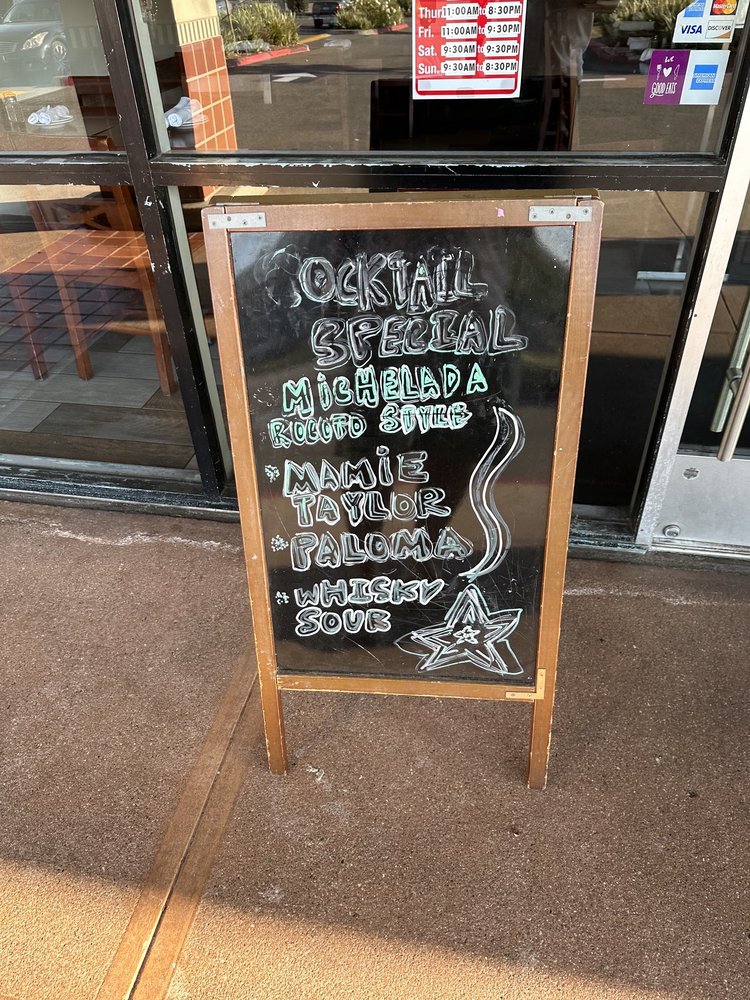 Thur 11:00AM to 8:30PM
Fri. 11:00AM to 9:30PM
Sat. 9:30AM to 9:30PM
Sun. 9:30AM to 8:30PM
MasterCard
VISA DISCOVER
we
GOOD EATS
AMERICAN EXPRESS
COCKTAIL
SPECIAL
MiCHELADA
ROCOTO STYLE
* MAMiE
TAYLOR
* PALOMA
* WHISKY
SOUR